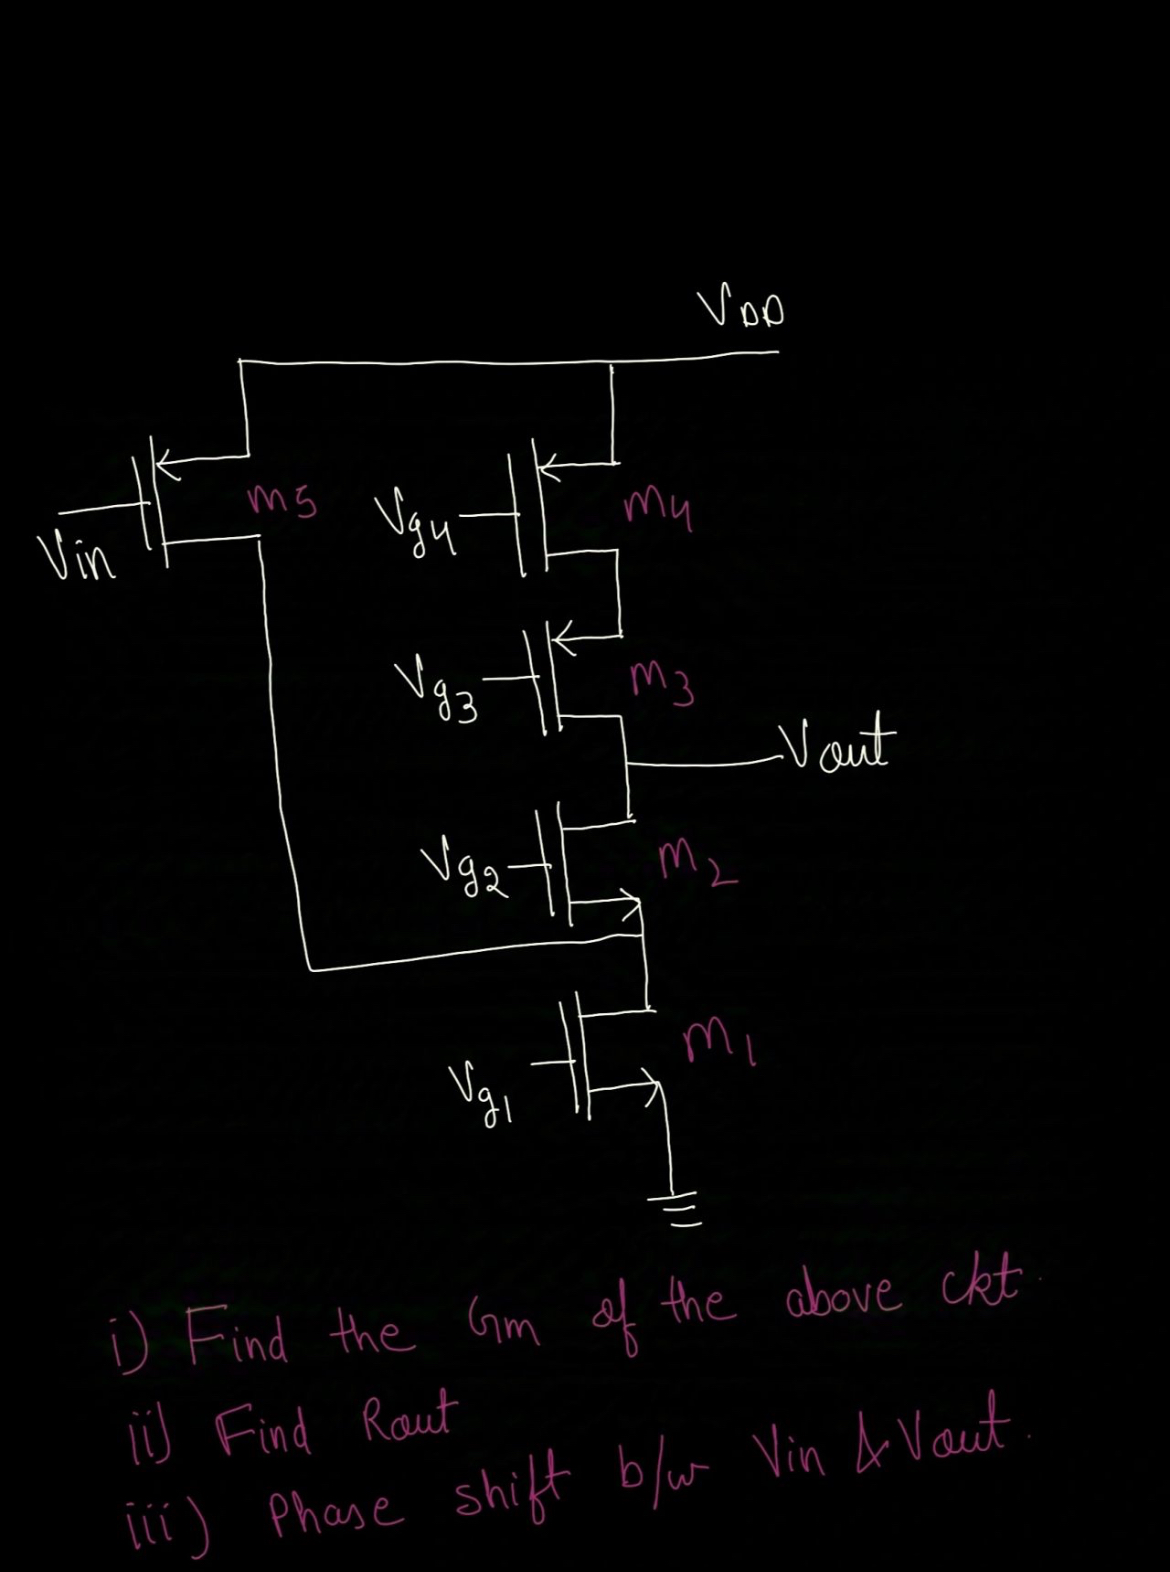 VDD
m5
Vin
Vg4
m4
Vg3
m3
Vout
Vg2
m2
Vg1
m1
i) Find the Gm of the above ckt.
ii) Find Rout
iii) Phase shift b/w Vin & Vout.